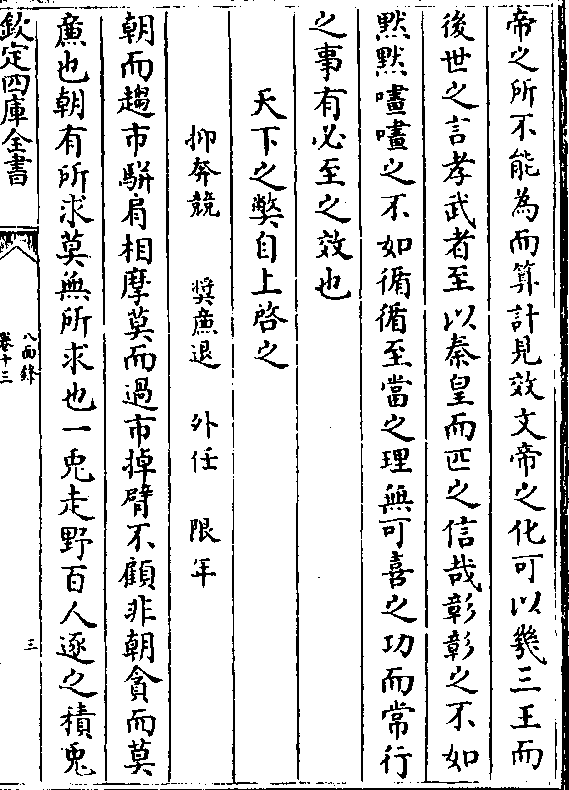 帝之所不能為而算計見效文帝之化可以幾三王而
後世之言孝武者至以秦皇而匹之信哉彰彰之不如
黙黙㗲㗲之不如循循至當之理無可喜之功而常行
之事有必至之效也
天下之弊自上啓之
抑奔競 奨㢘退 外任 限年
朝而趨市駢肩相摩莫而過市掉臂不顧非朝貪而莫
㢘也朝有所求莫無所求也一兎走野百人逐之積兎
欽定四庫全書
八面鋒
卷十三
三